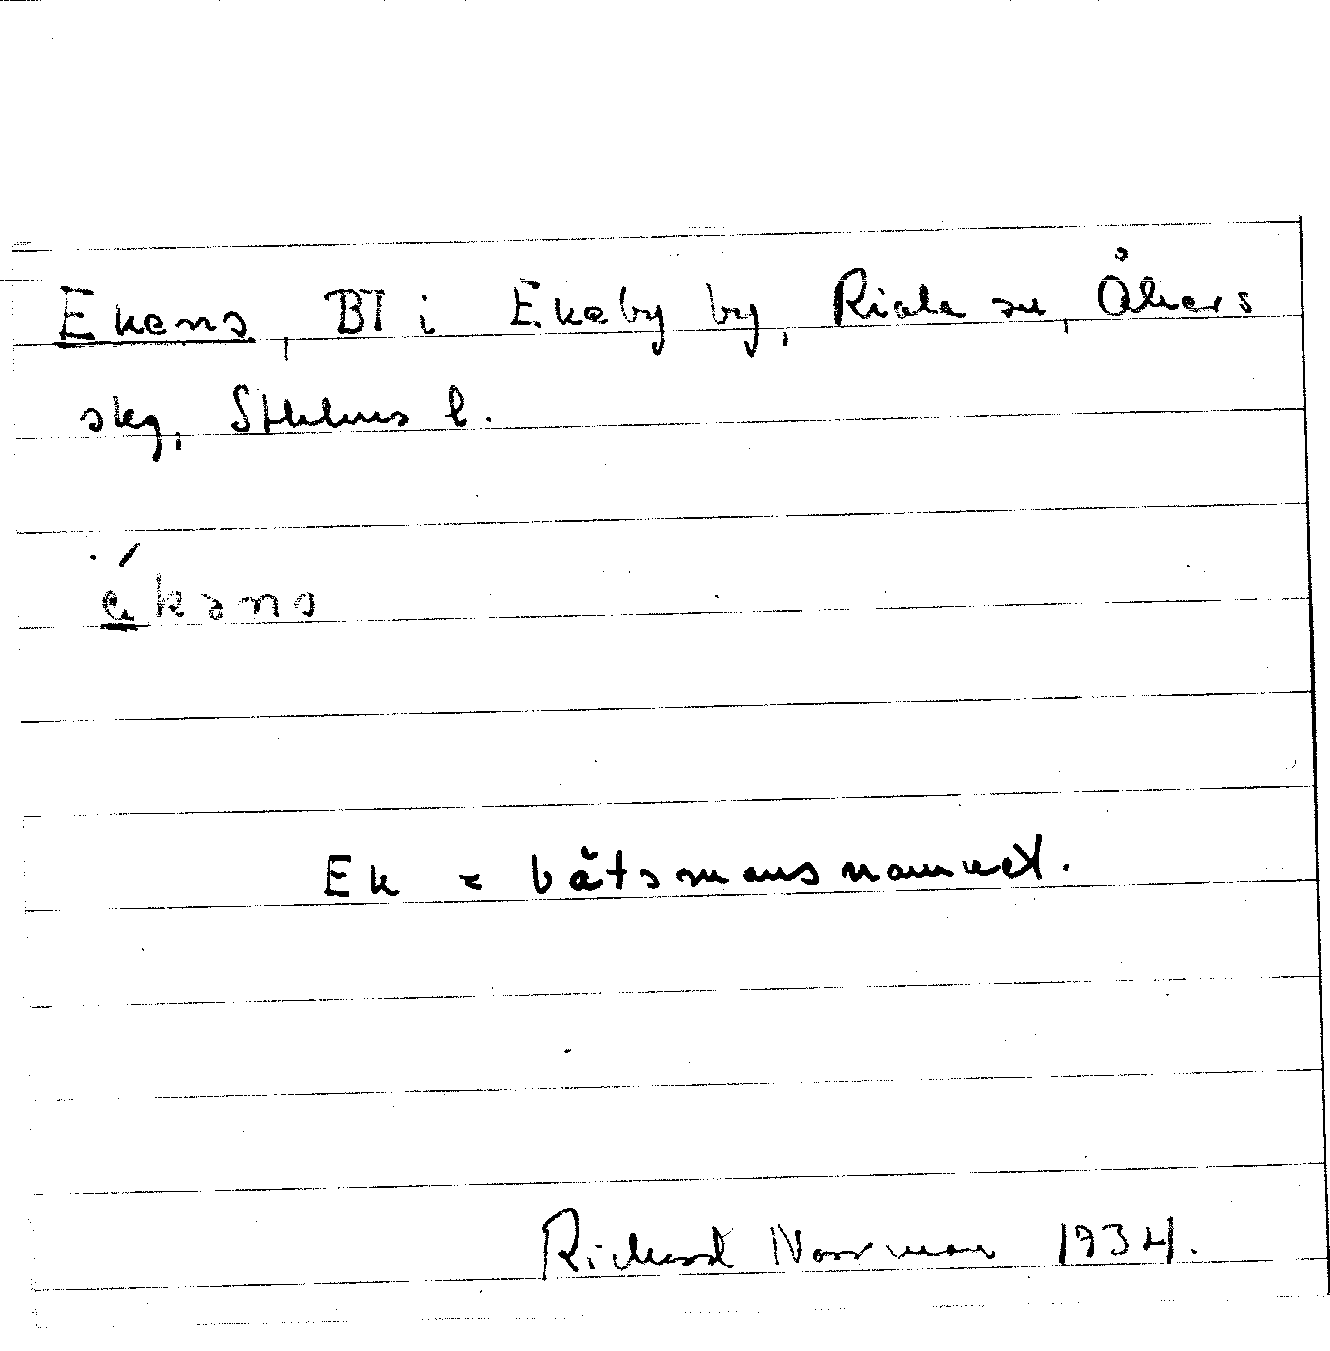 Ekens, BT i Ekeby by, Riala sn, Åkers
skg, Sthlms l.
é̱kəns
Ek = båtsmansnamnet.
Richard Norrman 1934.